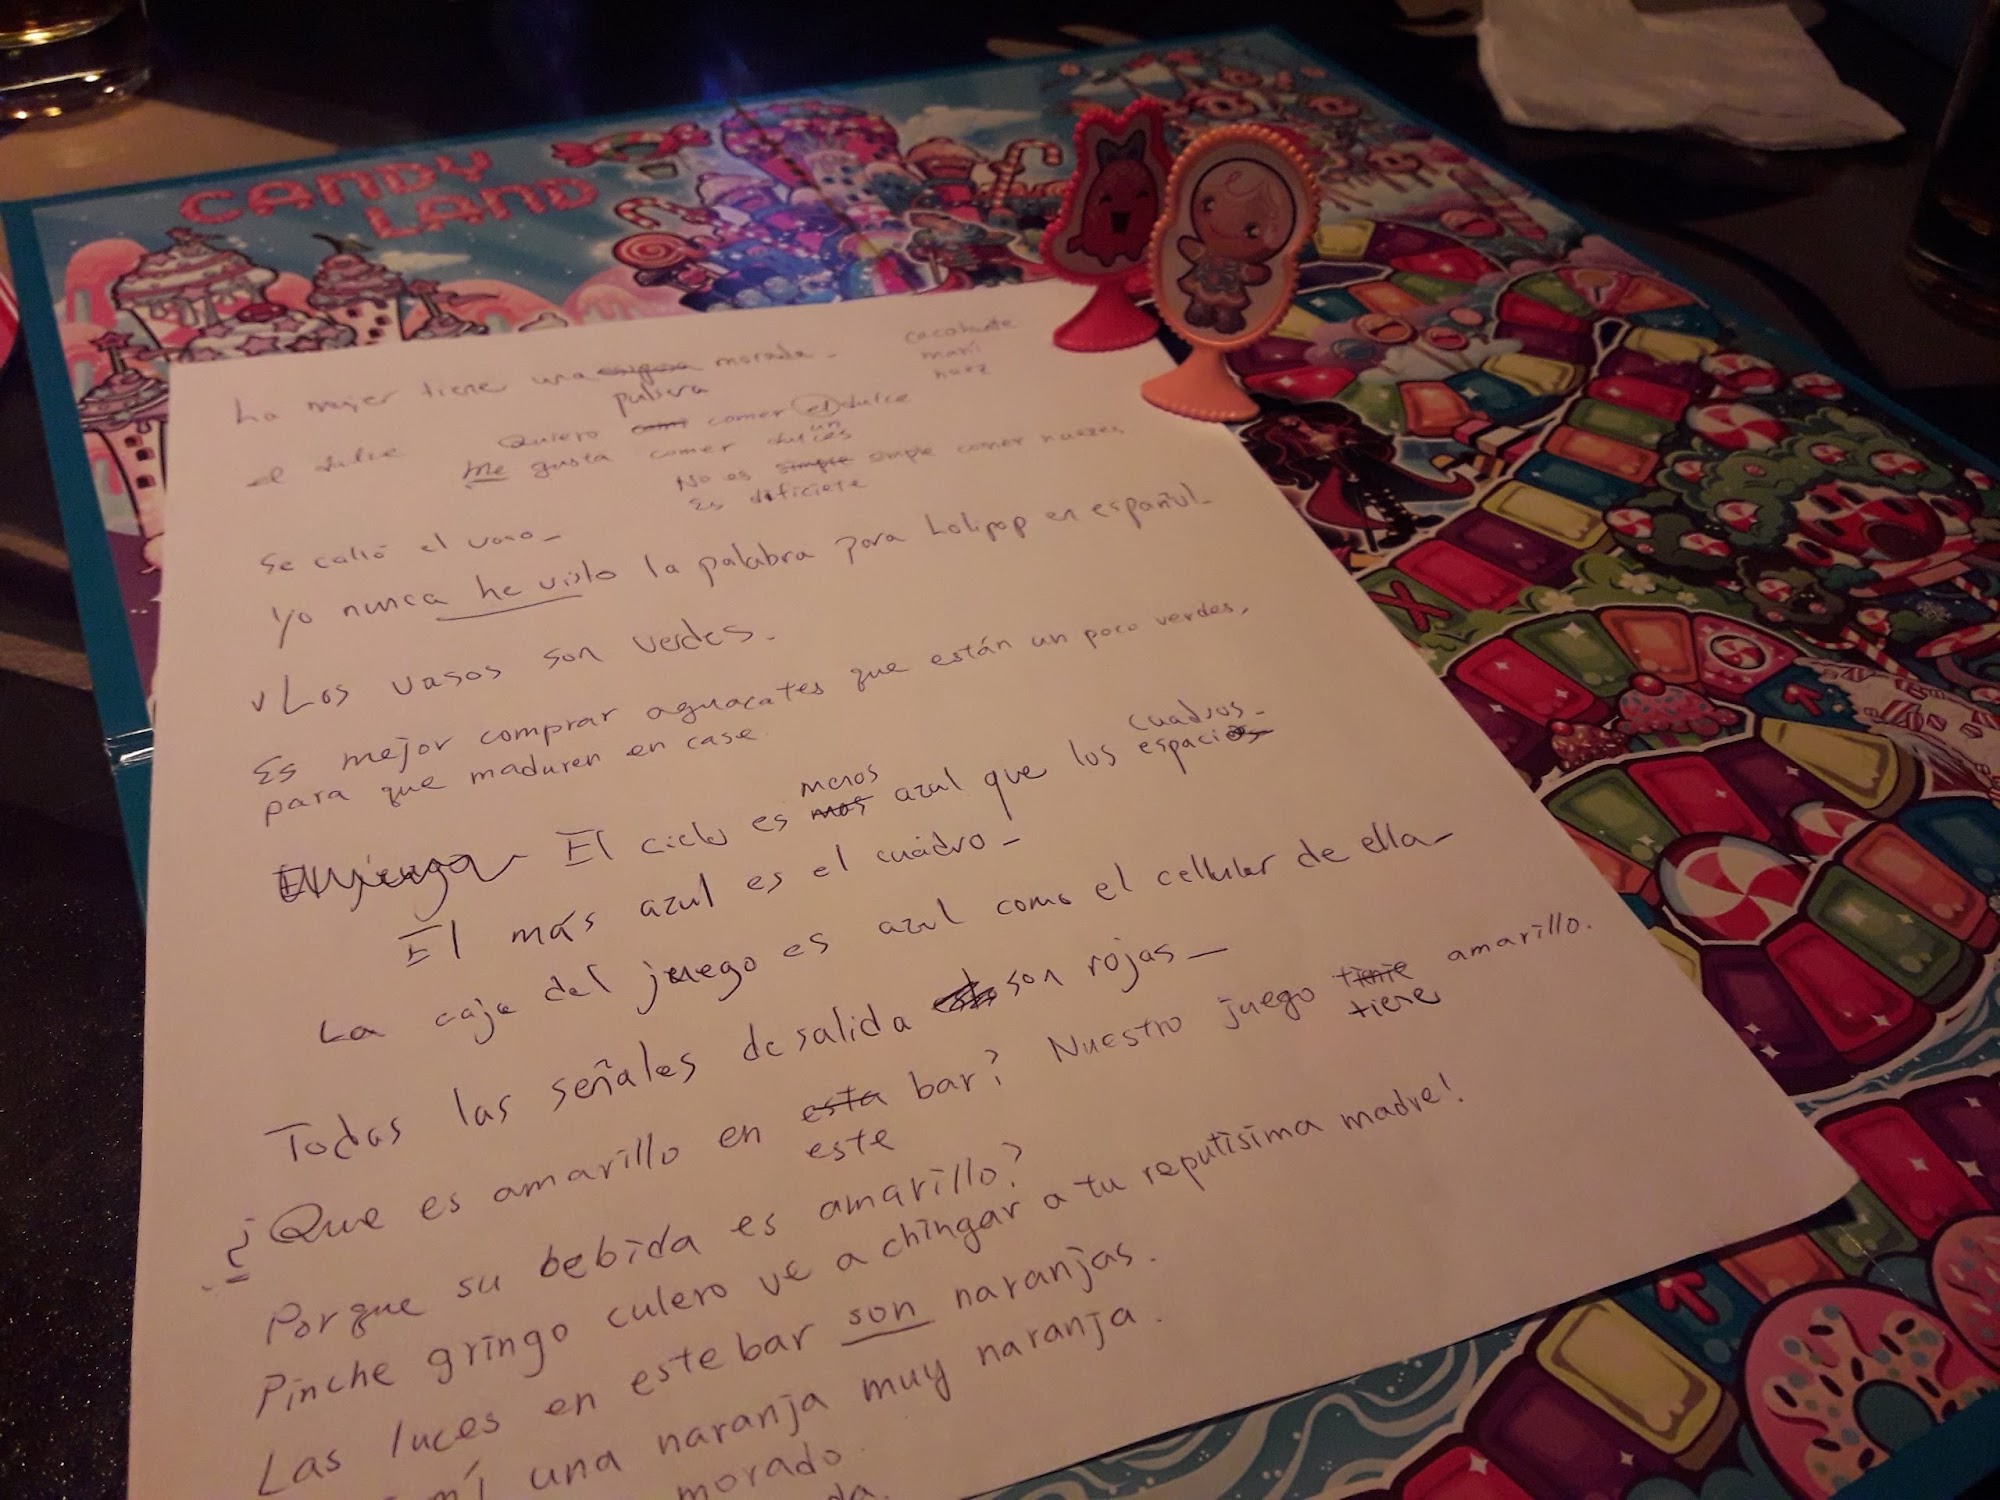 CANDY
LAND
La mujer tiene una morada.
pulsera
cacahuate
maní
nuez
el dulce
Quiero comer el dulce
un
Me gusta comer dulces
No es simple simple comer nuezes
Es dificiete
Se calló el vaso.
Yo nunca he visto la palabra para Lolipop en español.
Los vasos son verdes.
Es mejor comprar aguacates que están un poco verdes,
para que maduren en case
menos
cuadros.
El cielo es mas azul que los espacios
El más azul es el cuadro.
La caja del juego es azul como el cellular de ella.
Todas las señales de salida son rojas.
¿Que es amarillo en esta bar? Nuestro juego tienie amarillo.
este
tiene
Porque su bebida es amarillo?
Pinche gringo culero ve a chingar a tu reputísima madre!
Las luces en este bar son naranjas.
una naranja muy naranja.
morado.